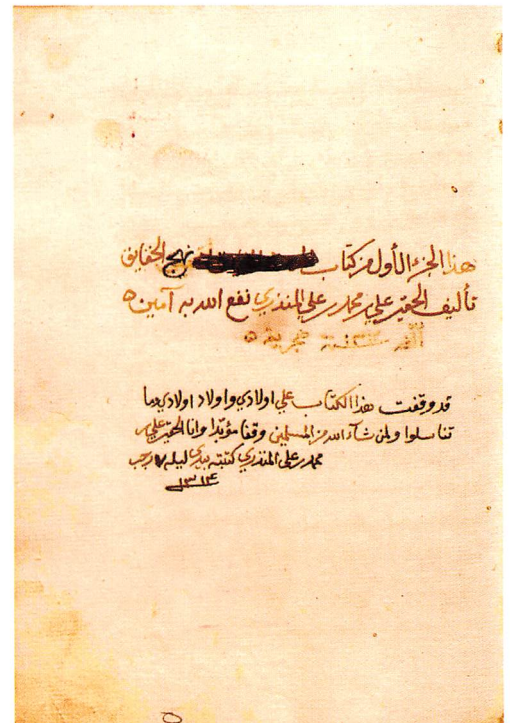 هذا الجزء الأول من كتاب نهج الحقايق
تأليف الحقير علي بن محمد بن علي المنذري نفع الله به آمين ه
ألفه سنة هجرية ه
قد وقفت هذا الكتاب علي اولادي واولاد اولادي وما
تناسلوا ولمن شآء الله من المسلمين وقفا مؤبّدا وانا الحقير علي بن
محمد بن علي المنذري كتبته بيدي ليلة ٧ رجب
١٣١٤